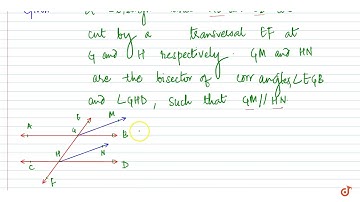 cut by a transversal EF at
G and H respectively. GM and HN
are the bisector of corr angles, ∠EGB
and ∠GHD, such that GM//HN
E M
A G B
H N
C D
F